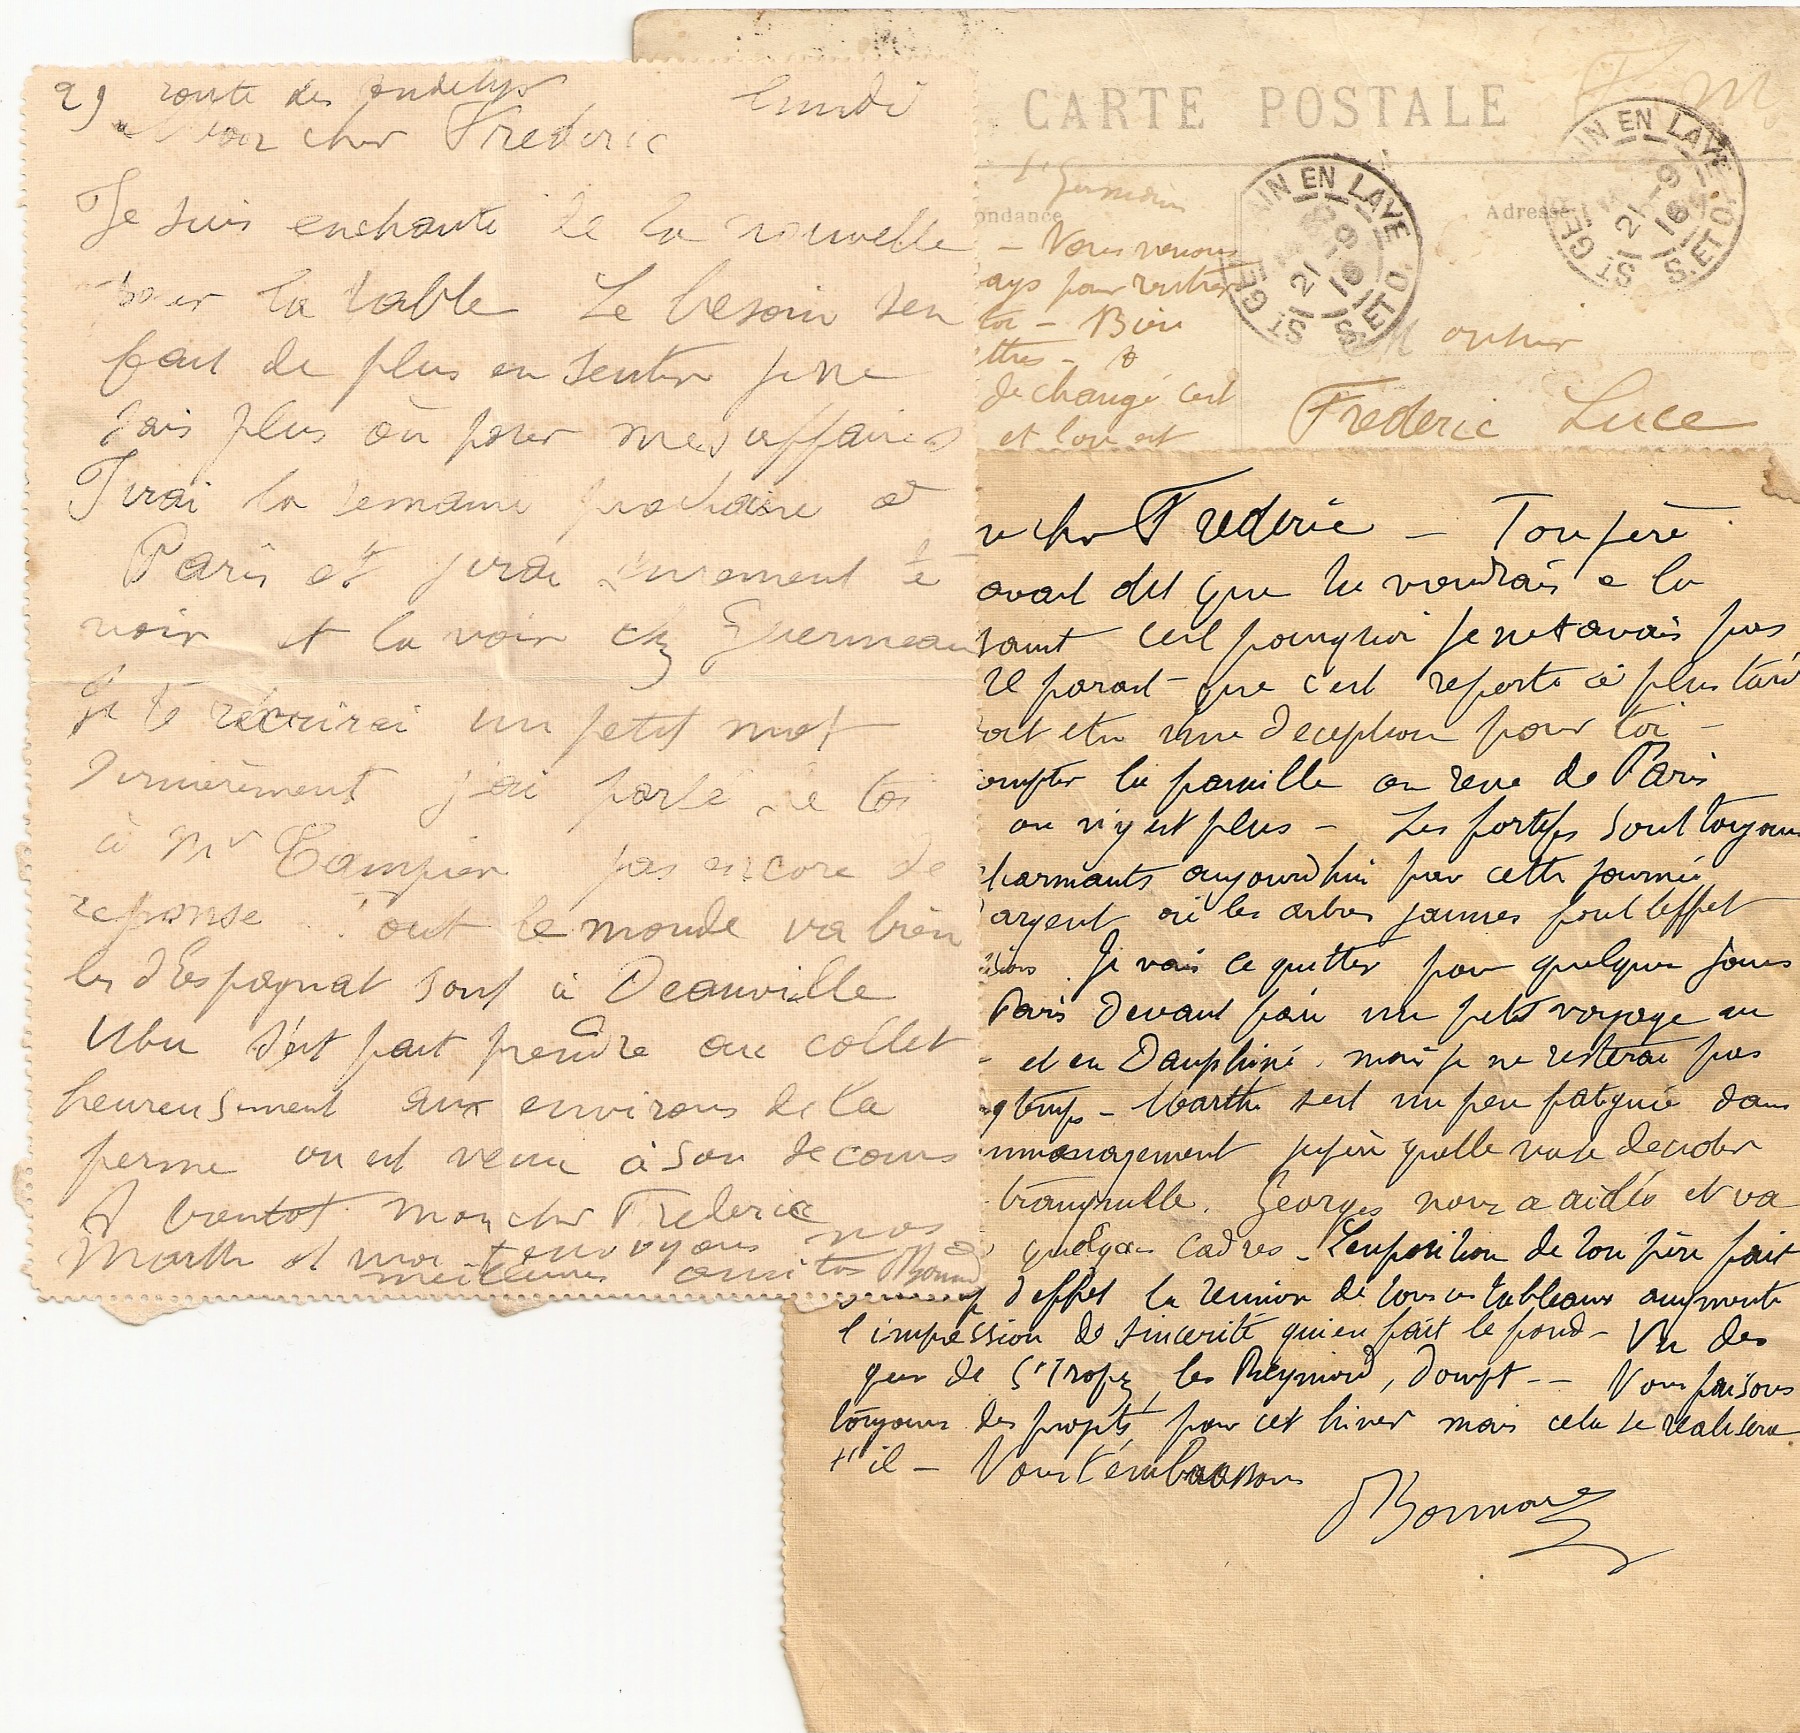 29 route des andelys lundi
Mon cher Frederic
Je suis enchante de la nouvelle
pour la table Le besoin sen
fait de plus en sentir je ne
sais plus où poser mes affaires
J irai la semaine prochaine a
Paris et j irai surement te
voir et la voir chez
Je te récrirai un petit mot
Dernièrement j'ai parlé de toi
à Mr Tampier pas encore de
reponse Tout le monde va bien
les d'Espagnat sont à Deauville
Ubu s'est fait prendre au collet
heureusement aux environs de la
ferme on est venu à son secours
A bientot mon cher Frederic
Marthe et moi t envoyons nos
meilleures amities PBonnard
CARTE POSTALE
St Germain
ondance
Adresse
ST GERMAIN EN LAYE
21 -9
S. ET O.
ST GERMAIN EN LAYE
21 -9
S. ET O.
– Nous venons
ays pour rentrer
toi – Bien
ttres –
de changé c'est
et l'on est
Monsieur
Frederic Luce
n cher Frederic – Ton père
avait dit que tu viendrais a la
saint c'est pourquoi je ne t avais pas
Il parait que c'est reporté à plus tard
oit etre une deception pour toi –
ompter la famille on reve de Paris
on n'y est plus – Les fortifs sont toujours
harmants aujourd'hui par cette journée
argent où les arbres jaunes font l'effet
Je vais ce quitter pour quelques jours
Paris devant faire un petit voyage au
et en Dauphiné. mais je ne resterai pas
gtemps – Marthe s'est un peu fatiguée dans
mménagement j'espère qu'elle va se decider
tranquille. Georges nous a aidés et va
quelques cadres – L'exposition de ton père fait
d'effet la reunion de tous ces tableaux augmente
l'impression de sincerité qui en fait le fond – Vu des
gens de St Tropez, les Person, Doucet – – Nous faisons
toujours des projets pour cet hiver mais cela se realisera
t'il – Nous t'embrassons
PBonnard